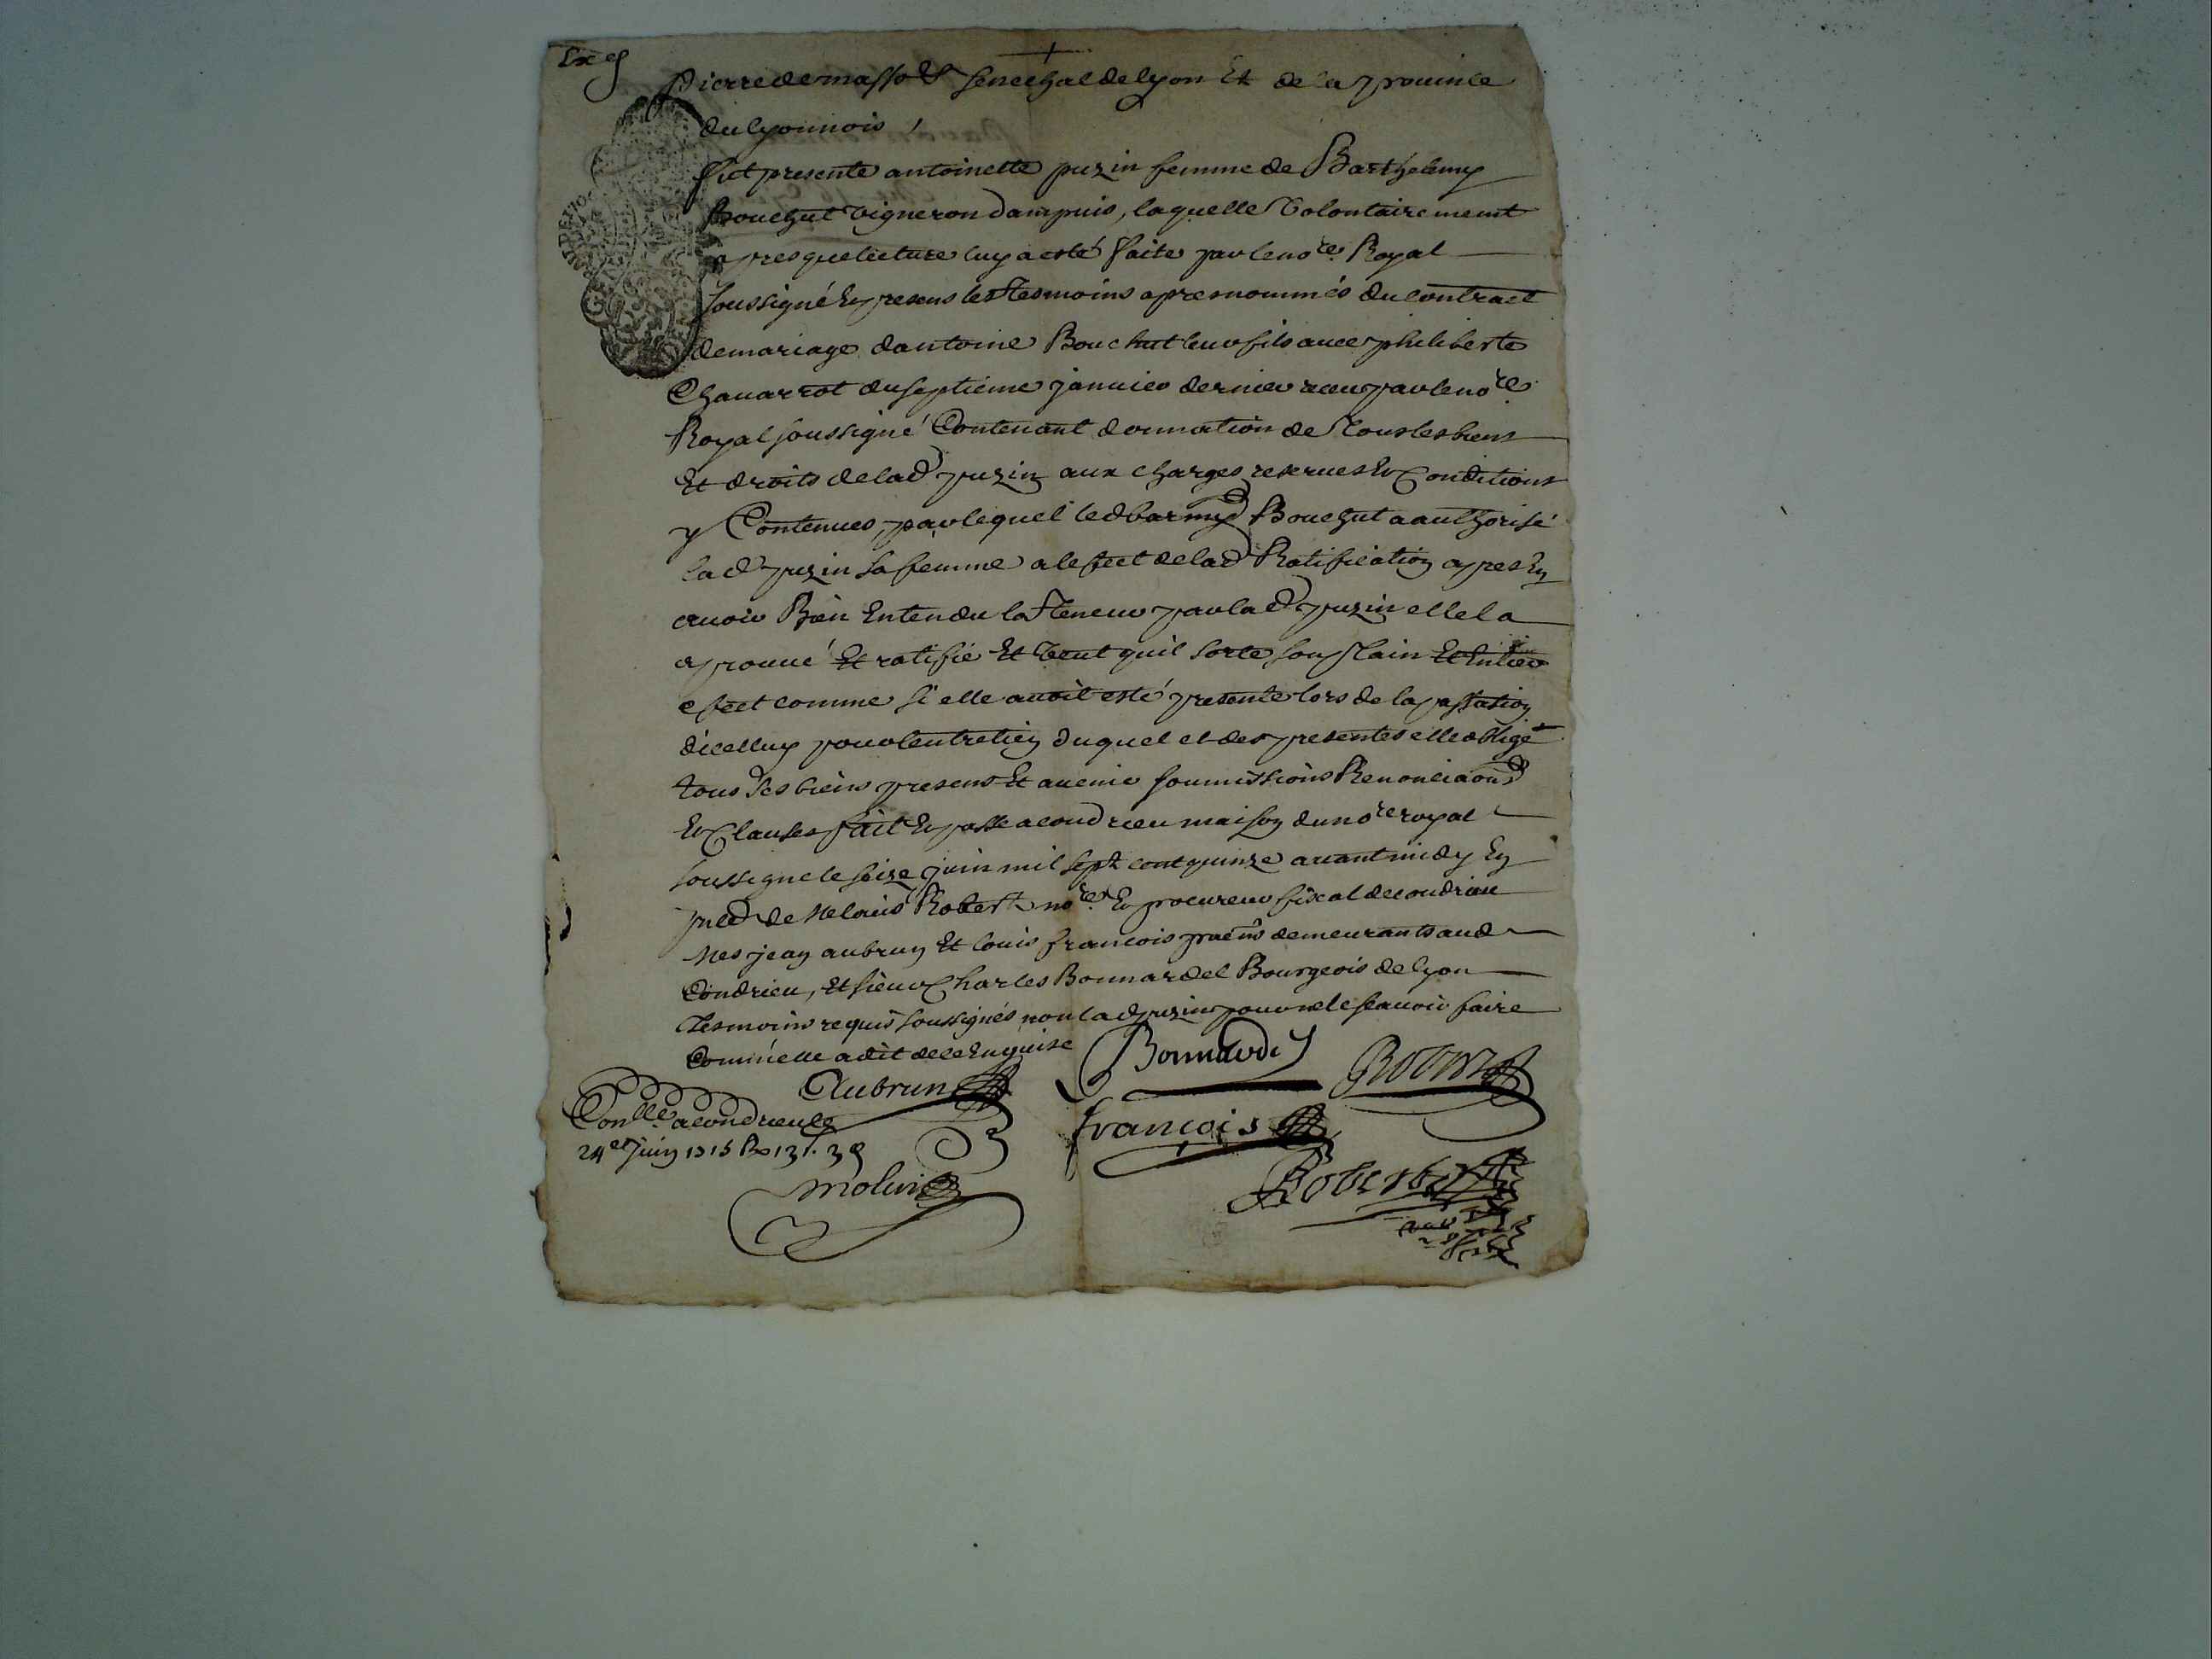 Pierre de masso Senechal de lyon Et de la province
du lyonnois
fut presente antoinette puzin femme de Barthelemy
Bouchut vigneron dampuis, laquelle Volontairement
apres que lecture luy a esté faite par le no.re Royal
soussigné En presens les tesmoins apres nommés du contract
de mariage dantoine Bouchut leur fils avec philiberte
Chavarrot du septieme janvier dernier receu par le no.re
Royal soussigné Contenant donnation de tous les biens
Et droits de lad puzin aux charges reserves Et Conditions
y Contenues, par lequel led Bar.my Bouchut a authorisé
lad puzin sa femme a lefect de lad Ratification apres En
avoir Bien Entendu la teneur par lad puzin elle la
aprouvé Et ratifié Et veut quil sorte son plain Et Entier
efect comme si elle avoit esté presente lors de la passation
dicelluy pour lentretien duquel et des presentes elle oblige
tous ses biens presens Et avenir soumissions Renonciaons
Et Clauses fait Et passe a condrieu maison du no.re royal
soussigne le seize juin mil sept cent quinze avant midy En
pnce de Me louis Robert no.re Et procureur fiscal de condrieu
Mes jean aubrun Et louis francois pratn̄s demeurants aud
Condrieu, Et sieur Charles Bonnardel Bourgeois de lyon
Tesmoins requis soussignés non lad puzin pour ne le scavoir faire
Comme elle a dit de ce Enquise
Bonnardel
Aubrun
Robert
françois
Con.llé a condrieu le
24e Juin 1715 R
Molin
Robert